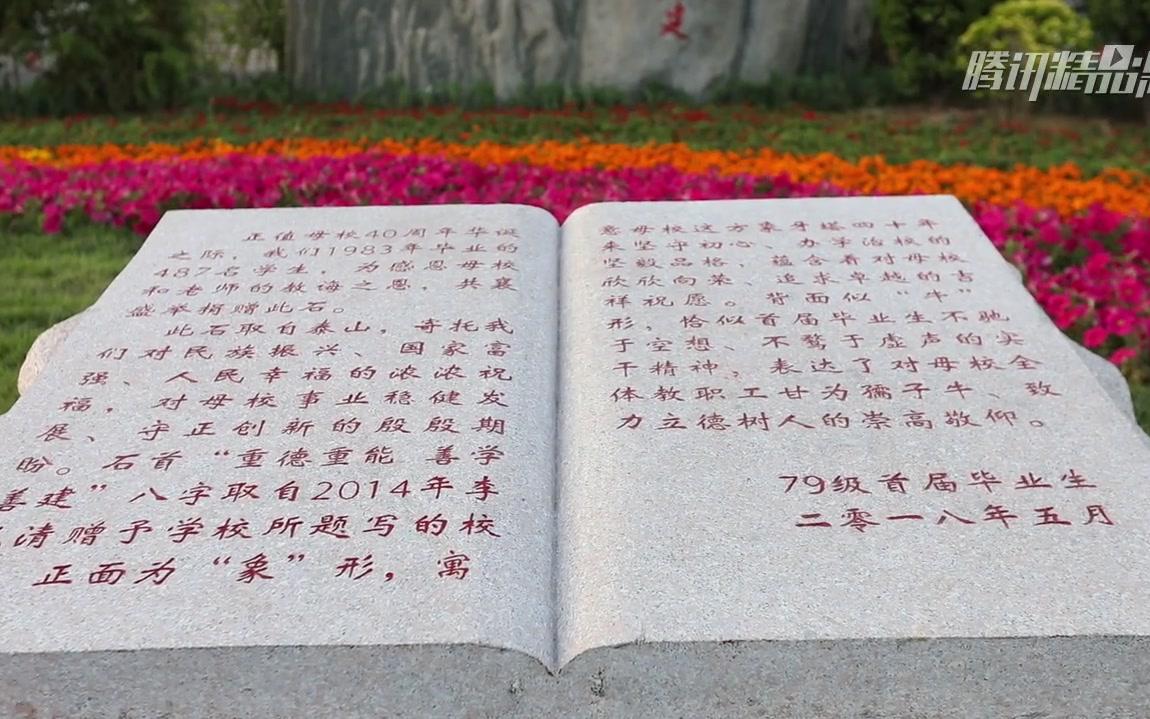 建
腾讯精品
正值母校40周年华诞
之际，我们1983年毕业的
487名学生，为感恩母校
和老师的教诲之恩，共襄
盛举捐赠此石。
此石取自泰山，寄托我
们对民族振兴、国家富
强、人民幸福的浓浓祝
福，对母校事业稳健发
展、守正创新的殷殷期
盼。石首“重德重能 善学
善建”八字取自2014年李
清赠予学校所题写的校
正面为“象”形，寓
意母校这方象牙塔四十年
来坚守初心、办学治校的
坚毅品格，蕴含着对母校
欣欣向荣、追求卓越的吉
祥祝愿。背面似“牛”
形，恰似首届毕业生不驰
于空想、不骛于虚声的实
干精神，表达了对母校全
体教职工甘为孺子牛、致
力立德树人的崇高敬仰。
79级首届毕业生
二零一八年五月